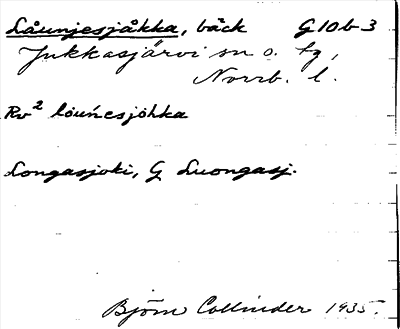 Låunjesjåkka, bäck G10b-3
Jukkasjärvi sn o. tg,
Norrb. l.
Rv² lòuńesjöhka
Longasjoki, G Luongasj.
Björn Collinder 1935.